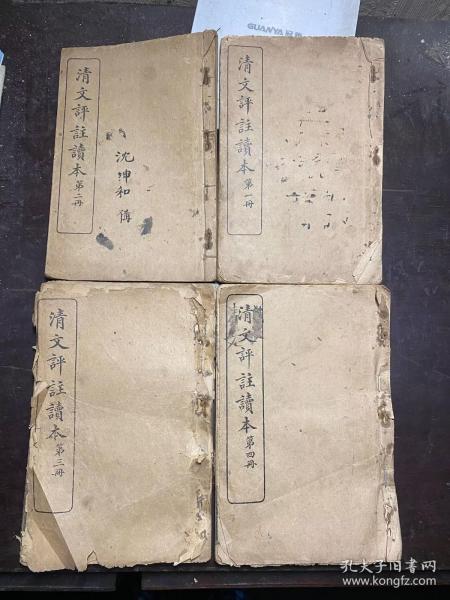 GUANYA
清文評註讀本 第二冊
沈坤和
清文評註讀本 第一冊
清文評註讀本 第三冊
清文評註讀本 第四冊
孔夫子旧书网
www.kongfz.com